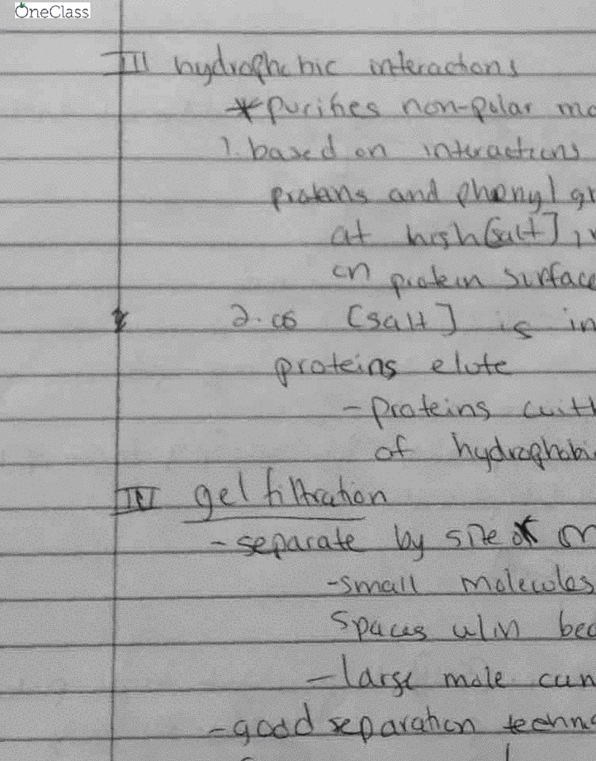 OneClass
III hydrophobic interactions
*purifies non-polar mo
1. based on interactions
proteins and phenyl gr
at high [salt],
on protein surface
2. as [salt] is in
proteins elute
- proteins with
of hydrophobi
IV gel filtration
- separate by size of m
- small molecules
spaces w/in bea
- large mole can
- good separation techni